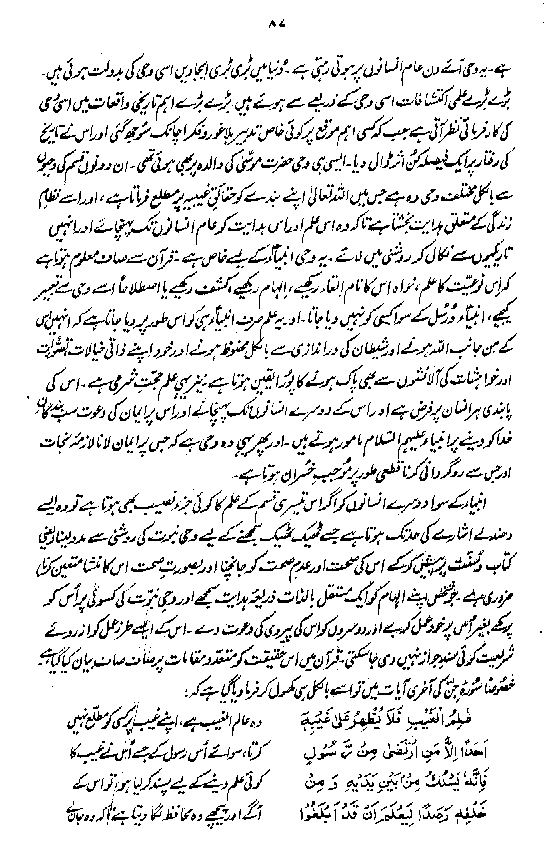 ۸۷
ہے۔ یہ وحی آئے دن عام انسانوں پر ہوتی رہتی ہے۔ دنیا میں بڑی بڑی ایجادیں اسی وحی کی بدولت ہوئی ہیں۔
بڑے بڑے علمی اکتشافات اسی وحی کے ذریعے سے ہوئے ہیں۔ بڑے بڑے اہم تاریخی واقعات میں اسی وحی
کی کارفرمائی نظر آتی ہے جب کہ کسی اہم موقع پر کوئی خاص تدبیر بلا غور و فکر اچانک سوجھ گئی اور اس نے تاریخ
کی رفتار پر ایک فیصلہ کن اثر ڈال دیا۔ ایسی ہی وحی حضرت موسیٰؑ کی والدہ پر بھی ہوئی تھی۔ ان دونوں قسم کی وحیوں
سے بالکل مختلف وحی وہ ہے جس میں اللہ تعالیٰ اپنے بندے کو حقائق غیبیہ پر مطلع فرماتا ہے، اور اسے نظام
زندگی کے متعلق ہدایت بخشتا ہے تاکہ وہ اس علم اور اس ہدایت کو عام انسانوں تک پہنچائے اور انہیں
تاریکیوں سے نکال کر روشنی میں لائے۔ یہ وحی انبیاءؑ کے لیے خاص ہے۔ قرآن سے صاف معلوم ہوتا ہے
کہ اس نوعیت کا علم، خواہ اس کا نام القاء رکھیے، الہام رکھیے، کشف رکھیے یا اصطلاحاً اسے وحی سے تعبیر
کیجیے، انبیاءؑ و رسل کے سوا کسی کو نہیں دیا جاتا۔ اور یہ علم صرف انبیاءؑ ہی کو اس طور پر دیا جاتا ہے کہ انہیں اس
کے من جانب اللہ ہونے اور شیطان کی دراندازی سے بالکل محفوظ ہونے اور خود اپنے ذاتی خیالات، تصورات
اور خواہشات کی آلائشوں سے بھی پاک ہونے کا پورا یقین ہوتا ہے۔ نیز یہی علم حجت شرعی ہے۔ اس کی
پابندی ہر انسان پر فرض ہے اور اس کے دوسرے انسانوں تک پہنچانے اور اس پر ایمان کی دعوت سب بندگان
خدا کو دینے پر انبیاء علیہم السّلام مامور ہوتے ہیں۔ اور پھر یہی وہ وحی ہے کہ جس پر ایمان لانا لازمۂ نجات
اور جس سے روگردانی کرنا قطعی طور پر موجب خسران ہوتا ہے۔
انبیاء کے سوا دوسرے انسانوں کو اگر اس تیسری قسم کے علم کا کوئی جزء نصیب بھی ہوتا ہے تو وہ ایسے
دھندلے اشارے کی حد تک ہوتا ہے جسے ٹھیک ٹھیک سمجھنے کے لیے وحی نبوت کی روشنی سے مدد لینا (یعنی
کتاب و سنت پر پیش کر کے اس کی صحت اور عدم صحت کو جانچنا اور بصورت صحت اس کا منشا متعین کرنا)
ضروری ہے۔ جو شخص اپنے الہام کو ایک مستقل بالذات ذریعۂ ہدایت سمجھے اور وحی نبوت کی کسوٹی پر اُس کو
پرکھے بغیر اُس پر خود عمل کرے اور دوسروں کو اس کی پیروی کی دعوت دے۔ اس کے ایسے طرز عمل کو از روئے
شریعت کوئی سند جواز نہیں دی جا سکتی۔ قرآن میں اس حقیقت کو متعدد مقامات پر صاف صاف بیان کیا گیا ہے
خصوصاً سورۂ جن کی آخری آیات میں تو اسے بالکل ہی کھول کر فرما دیا گیا ہے کہ:
عٰلِمُ الْغَيْبِ فَلَا يُظْهِرُ عَلٰى غَيْبِهٖٓ
اَحَدًا اِلَّا مَنِ ارْتَضٰى مِنْ رَّسُوْلٍ
فَاِنَّهٗ يَسْلُكُ مِنْۢ بَيْنِ يَدَيْهِ وَ مِنْ
خَلْفِهٖ رَصَدًا لِّيَعْلَمَ اَنْ قَدْ اَبْلَغُوْا
وہ عالم الغیب ہے، اپنے غیب پر کسی کو مطلع نہیں
کرتا، سوائے اُس رسول کے جسے اُس نے غیب کا
کوئی علم دینے کے لیے پسند کر لیا ہو، تو اس کے
آگے اور پیچھے وہ محافظ لگا دیتا ہے تاکہ وہ جان لے